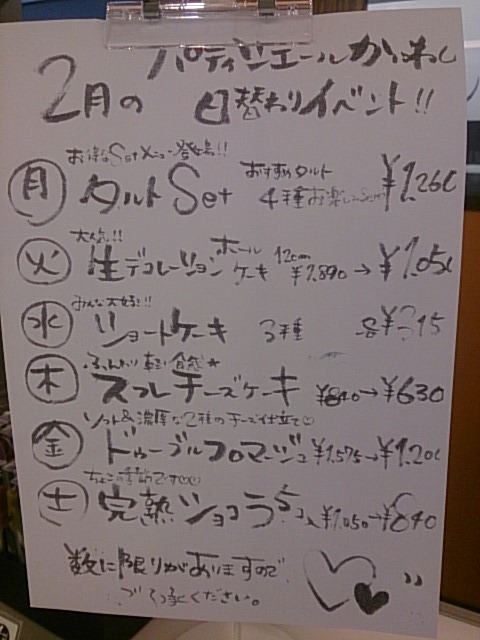 パティシエールかわむら
2月の 日替わりイベント!!
お得なSetメニュー登場!!
月 タルトSet おすすめタルト 4種お楽しみSet ¥1,260
大人気!!
火 生デコレーション ホールケーキ 12cm ¥1,890→¥1,050
みんな大好き!!
水 ショートケーキ 3種 各¥315
ふんわり軽い食感★
木 スフレチーズケーキ ¥840→¥630
ソフト&濃厚な2種のチーズ仕立て♡
金 ドゥーブルフロマージュ ¥1,575→¥1,200
ちょこの季節です♡♡
土 完熟ショコラ 5コ入 ¥1,050→¥840
数に限りがありますので
ご了承ください。